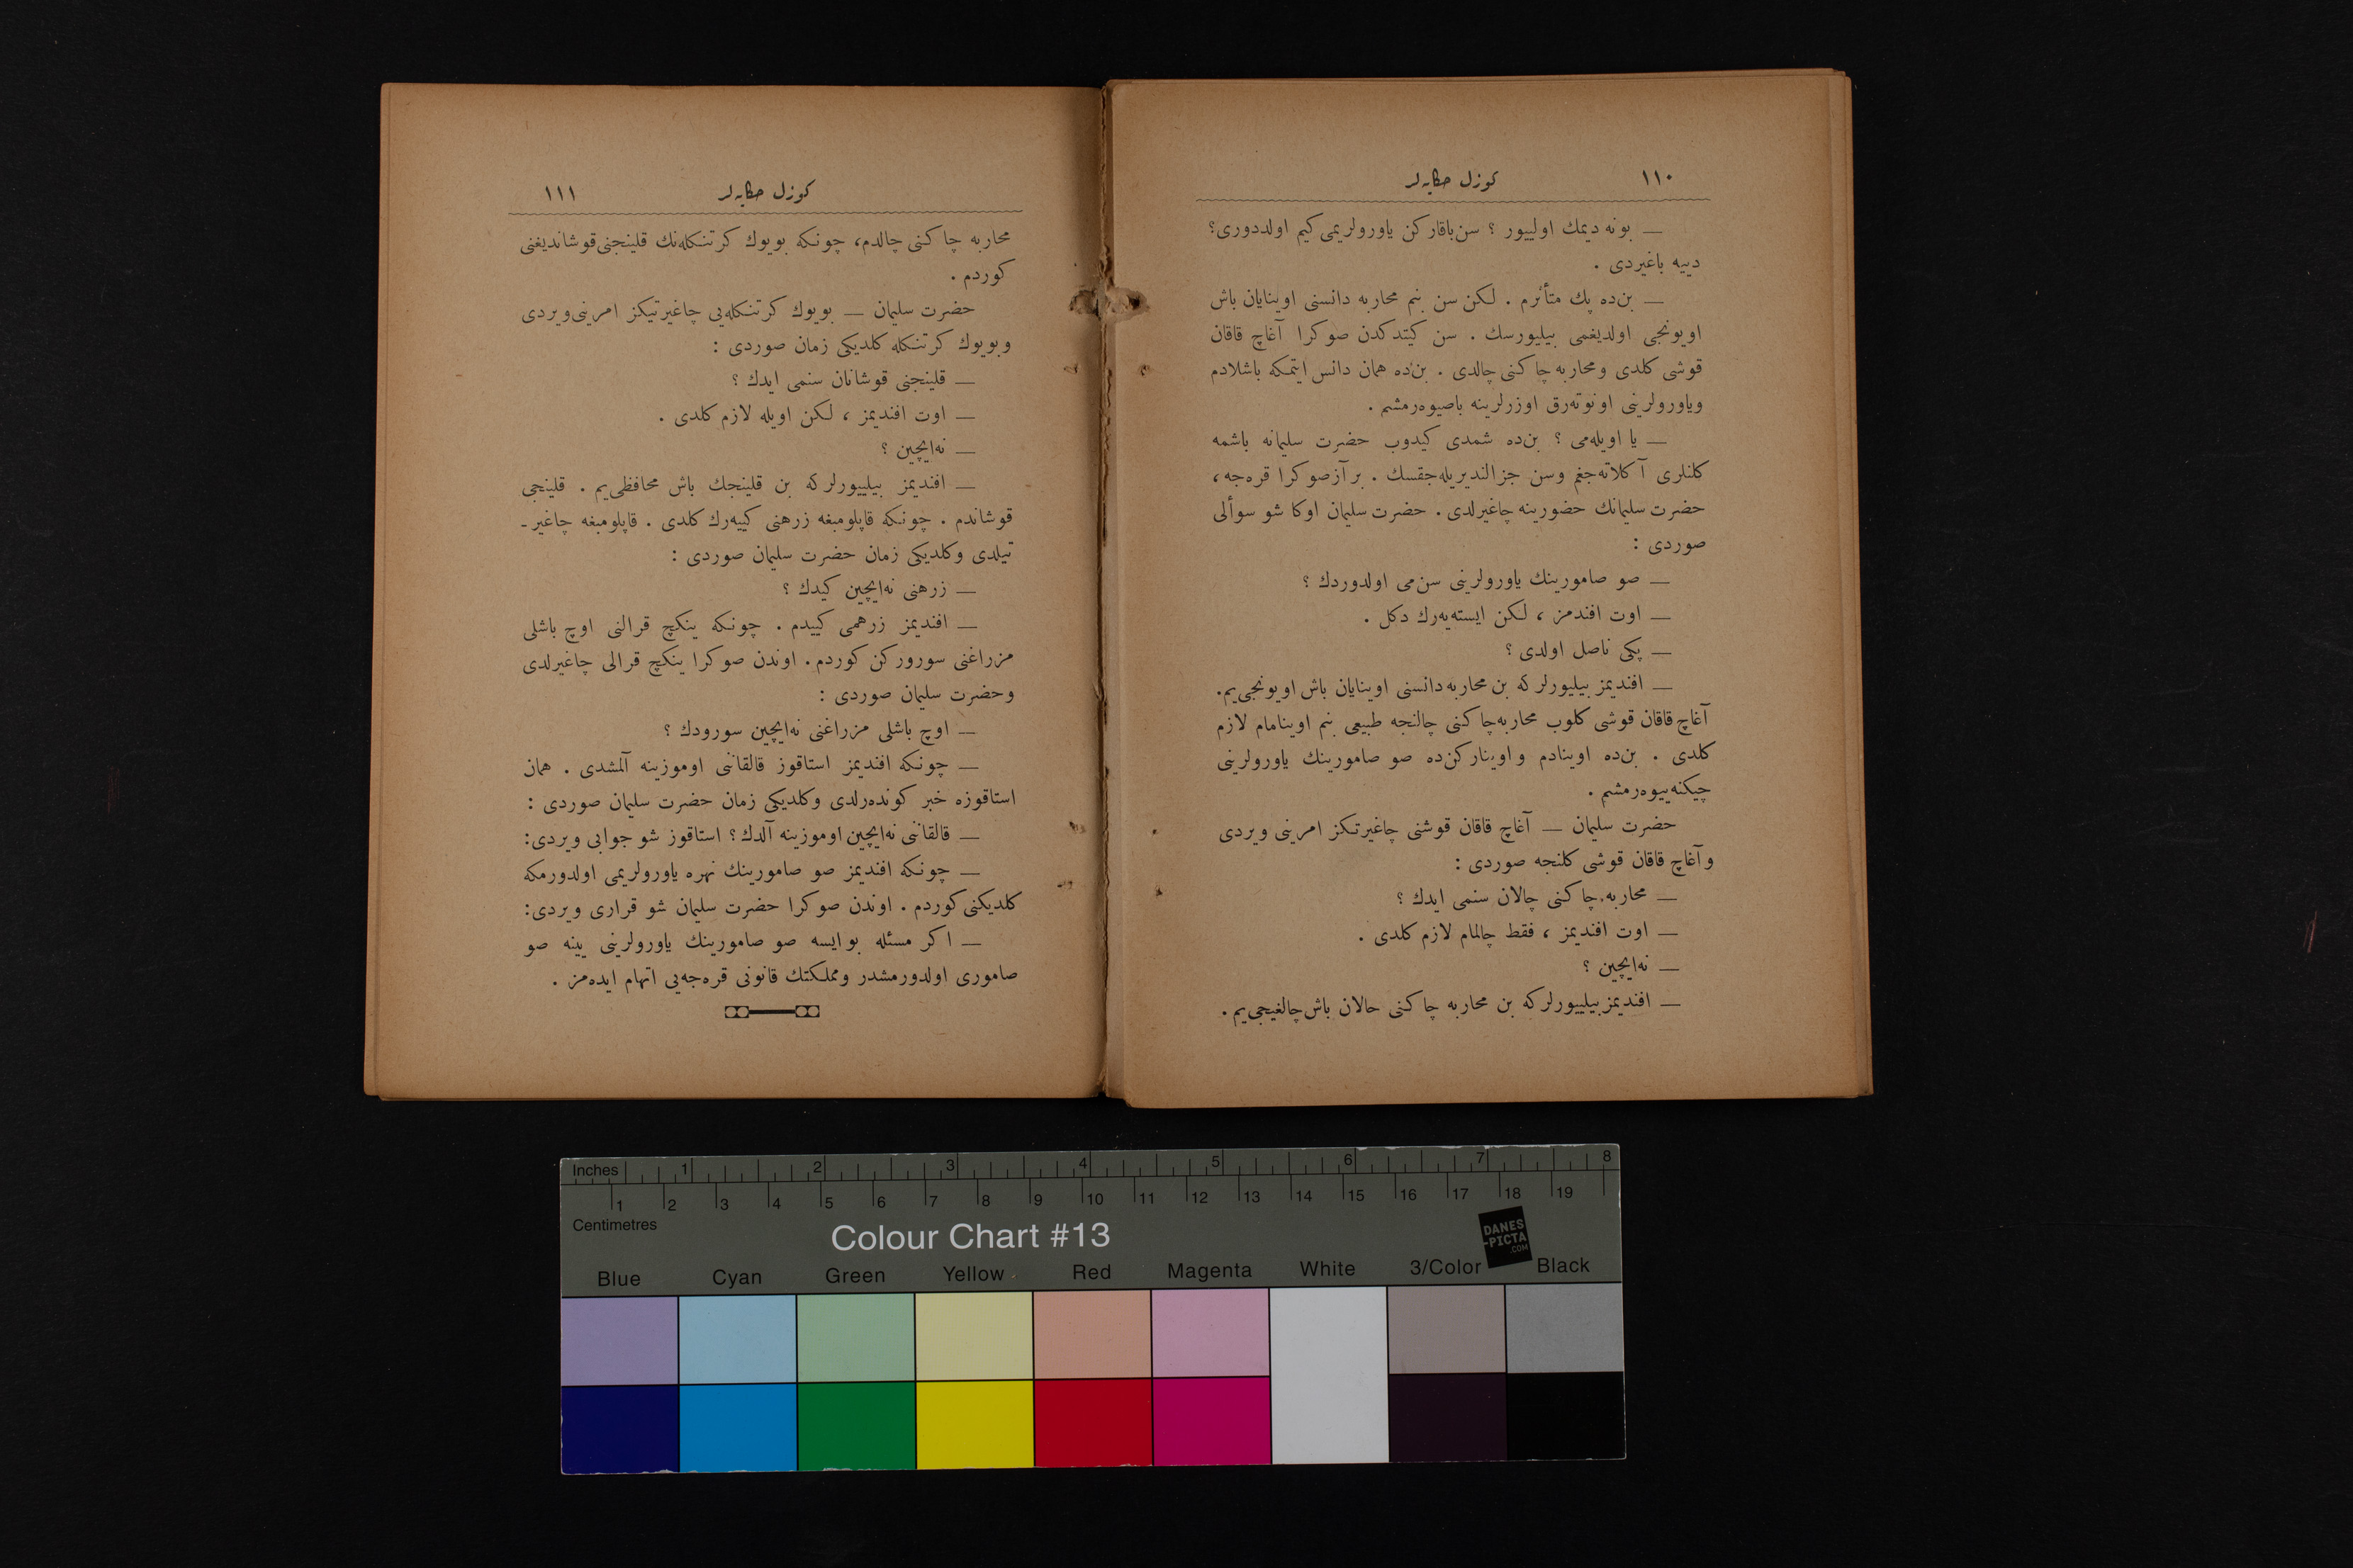 ١١٠
كوزل حكايه‌لر
— بونه ديمك اولييور ؟ سن باقاركن ياورولريمى كيم اولددورى؟
دييه باغيردى .
— بن‌ده پك متأثرم . لكن سن بنم محاربه دانسنى اوينايان باش
اويونجى اولديغمى بيليورسك . سن كيتدكدن صوكرا آغاچ قاقان
قوشى كلدى ومحاربه چاكنى چالدى . بن‌ده همان دانس ايتمكه باشلادم
وياورولرينى اونوته‌رق اوزرلرينه باصيوه‌رمشم .
— يا اويله‌مى ؟ بن‌ده شمدى كيدوب حضرت سليمانه باشمه
كلنلرى آكلاته‌جغم وسن جزالنديريله‌جقسك . بر آزصوكرا قره‌جه ،
حضرت سليمانك حضورينه چاغيرلدى . حضرت سليمان اوكا شو سوألى
صوردى :
— صو صامورينك ياورولرينى سن‌مى اولدوردك ؟
— اوت افندمز ، لكن ايسته‌يه‌رك دكل .
— پكى ناصل اولدى ؟
— افنديمز بيليورلركه بن محاربه دانسنى اوينايان باش اويونجى‌يم.
آغاچ قاقان قوشى كلوب محاربه چاكنى چالنجه طبيعى بنم اوينامام لازم
كلدى . بن‌ده اوينادم و اويناركن‌ده صو صامورينك ياورولرينى
چيكنه‌ييوه‌رمشم .
حضرت سليمان — آغاچ قاقان قوشنى چاغيرتكز امرينى ويردى
و آغاچ قاقان قوشى كلنجه صوردى :
— محاربه چاكنى چالان سنمى ايدك ؟
— اوت افنديمز ، فقط چالمام لازم كلدى .
— نه‌ايچين ؟
— افنديمز بيلييورلركه بن محاربه چاكنى حالان باش چالغيجى‌يم .
كوزل حكايه‌لر
١١١
محاربه چاكنى چالدم، چونكه بويوك كرتنكله‌نك قلينجنى قوشانديغنى
كوردم .
حضرت سليمان — بويوك كرتنكله‌يى چاغيرتيكز امرينى ويردى
وبويوك كرتنكله كلديكى زمان صوردى :
— قلينجنى قوشانان سنمى ايدك ؟
— اوت افنديمز ، لكن اويله لازم كلدى .
— نه‌ايچين ؟
— افنديمز بيلييورلركه بن قلينجك باش محافظى‌يم . قلينجى
قوشاندم . چونكه قاپلومبغه زرهنى كييه‌رك كلدى . قاپلومبغه چاغير-
تيلدى وكلديكى زمان حضرت سليمان صوردى :
— زرهنى نه‌ايچين كيدك ؟
— افنديمز زرهمى كييدم . چونكه ينكچ قرالنى اوچ باشلى
مزراغنى سوروركن كوردم . اوندن صوكرا ينكچ قرالى چاغيرلدى
وحضرت سليمان صوردى :
— اوچ باشلى مزراغنى نه‌ايچين سورودك ؟
— چونكه افنديمز استاقوز قالقاننى اوموزينه آلمشدى . همان
استاقوزه خبر كونده‌رلدى وكلديكى زمان حضرت سليمان صوردى :
— قالقاننى نه‌ايچين اوموزينه آلدك؟ استاقوز شو جوابى ويردى:
— چونكه افنديمز صو صامورينك نهره ياورولريمى اولدورمكه
كلديكنى كوردم . اوندن صوكرا حضرت سليمان شو قرارى ويردى:
— اكر مسئله بوايسه صو صامورينك ياورولرينى يينه صو
صامورى اولدورمشدر ومملكتك قانونى قره‌جه‌يى اتهام ايده‌مز .
Inches 1 2 3 4 5 6 7 8
1 2 3 4 5 6 7 8 9 10 11 12 13 14 15 16 17 18 19
Centimetres
Colour Chart #13
DANES
-PICTA
.COM
Blue Cyan Green Yellow Red Magenta White 3/Color Black